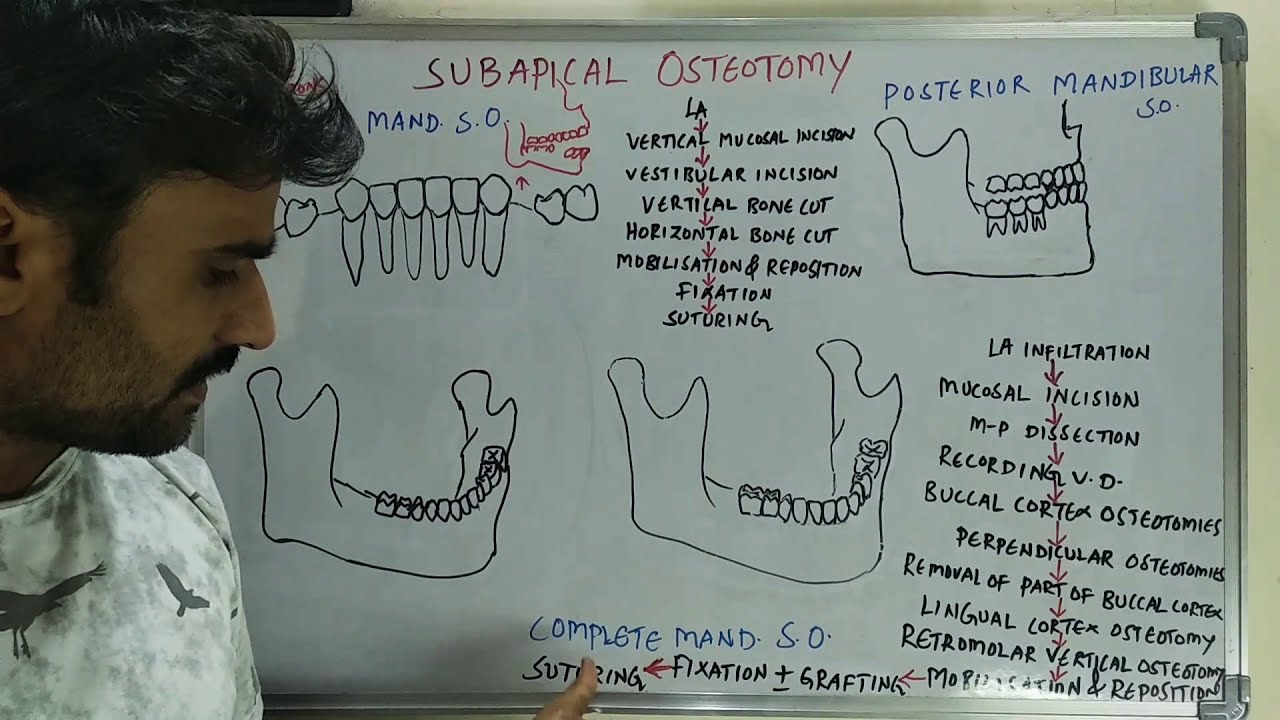 SUBAPICAL OSTEOTOMY
MAND. S.O.
LA
VERTICAL MUCOSAL INCISION
VESTIBULAR INCISION
VERTICAL BONE CUT
HORIZONTAL BONE CUT
MOBILISATION & REPOSITION
FIXATION
SUTURING
POSTERIOR MANDIBULAR
S.O.
LA INFILTRATION
MUCOSAL INCISION
M-P DISSECTION
RECORDING V.D.
BUCCAL CORTEX OSTEOTOMIES
PERPENDICULAR OSTEOTOMIES
REMOVAL OF PART OF BUCCAL CORTEX
LINGUAL CORTEX OSTEOTOMY
RETROMOLAR VERTICAL OSTEOTOMY
COMPLETE MAND. S.O.
SUTURING ← FIXATION ± GRAFTING ← MOBILISATION & REPOSITION